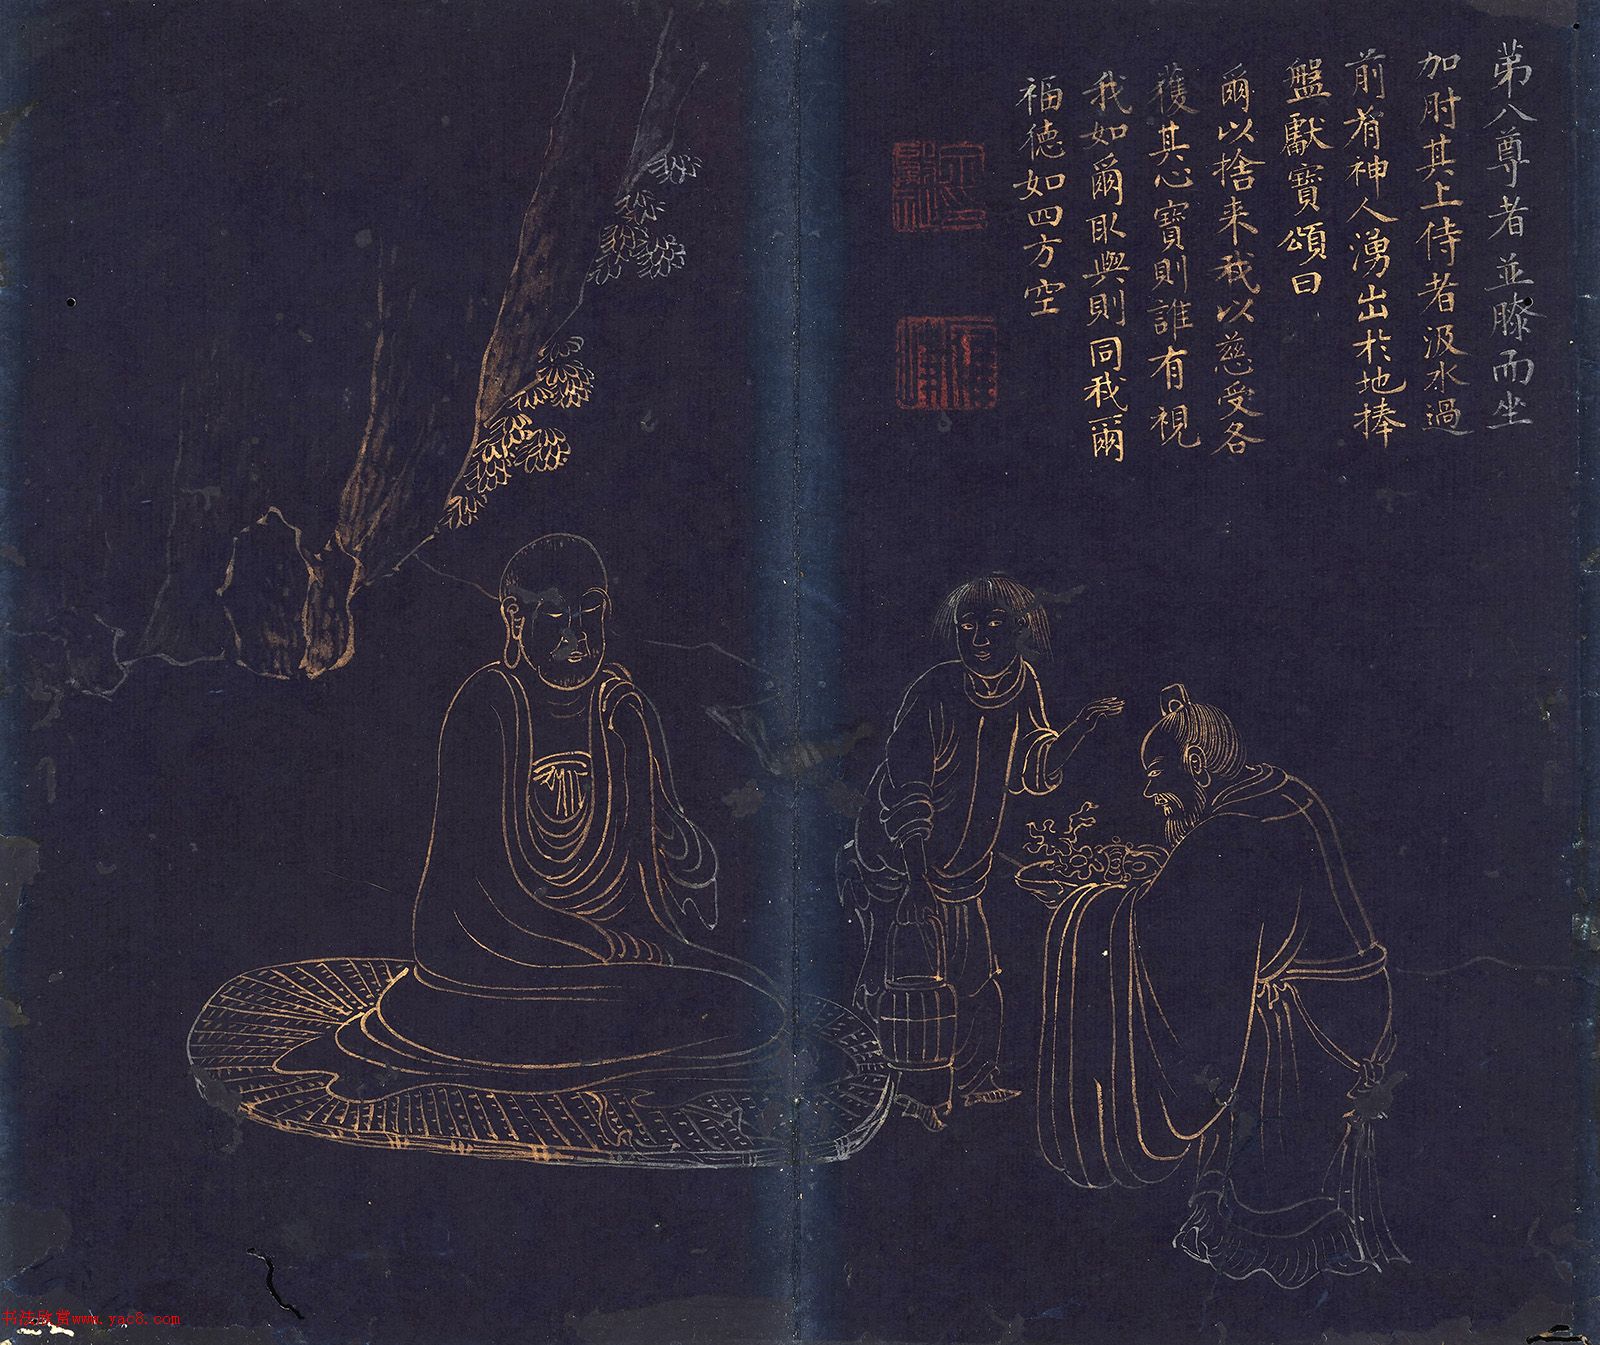 苐八尊者並膝而坐
加肘其上侍者汲水過
前有神人湧出於地捧
盤獻寶頌曰
爾以捨来我以慈受各
獲其心寶則誰有視
我如爾取與則同我爾
福德如四方空
书法欣赏www.yac8.com